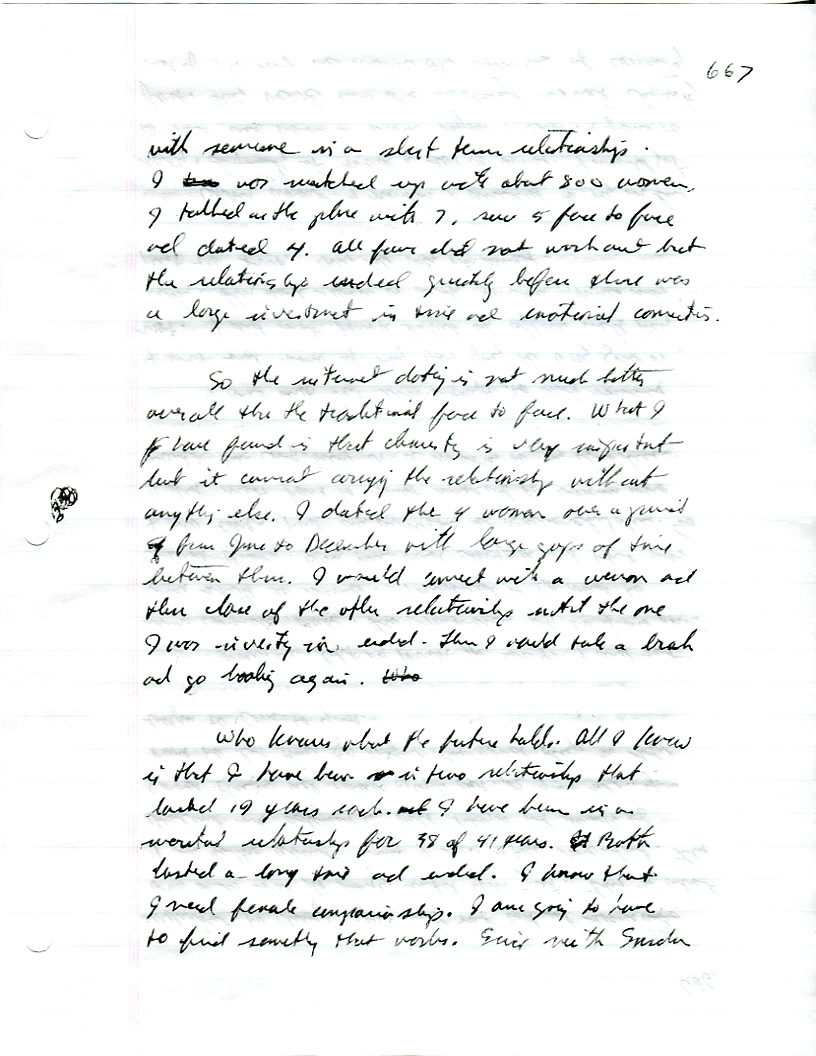 667
with someone in a short term relationship.
I was matched up with about 800 women,
I talked on the phone with 7, saw 5 face to face
and dated 4. All four did not work out but
the relationships ended quickly before there was
a large investment in time and emotional connection.
So the internet dating is not much better
overall than the traditional face to face. What I
have found is that chemistry is very important
but it cannot carry the relationship without
anything else. I dated the 4 women over a period
from June to December with large gaps of time
between them. I would connect with a woman and
then close off the other relationships until the one
I was investing in ended. Then I would take a break
and go looking again. Who
Who knows what the future holds. All I know
is that I have been in two relationships that
lasted 19 years each. I have been in a
marital relationship for 38 of 41 years. Both
lasted a long time and ended. I know that
I need female companionship. I am going to have
to find something that works. with